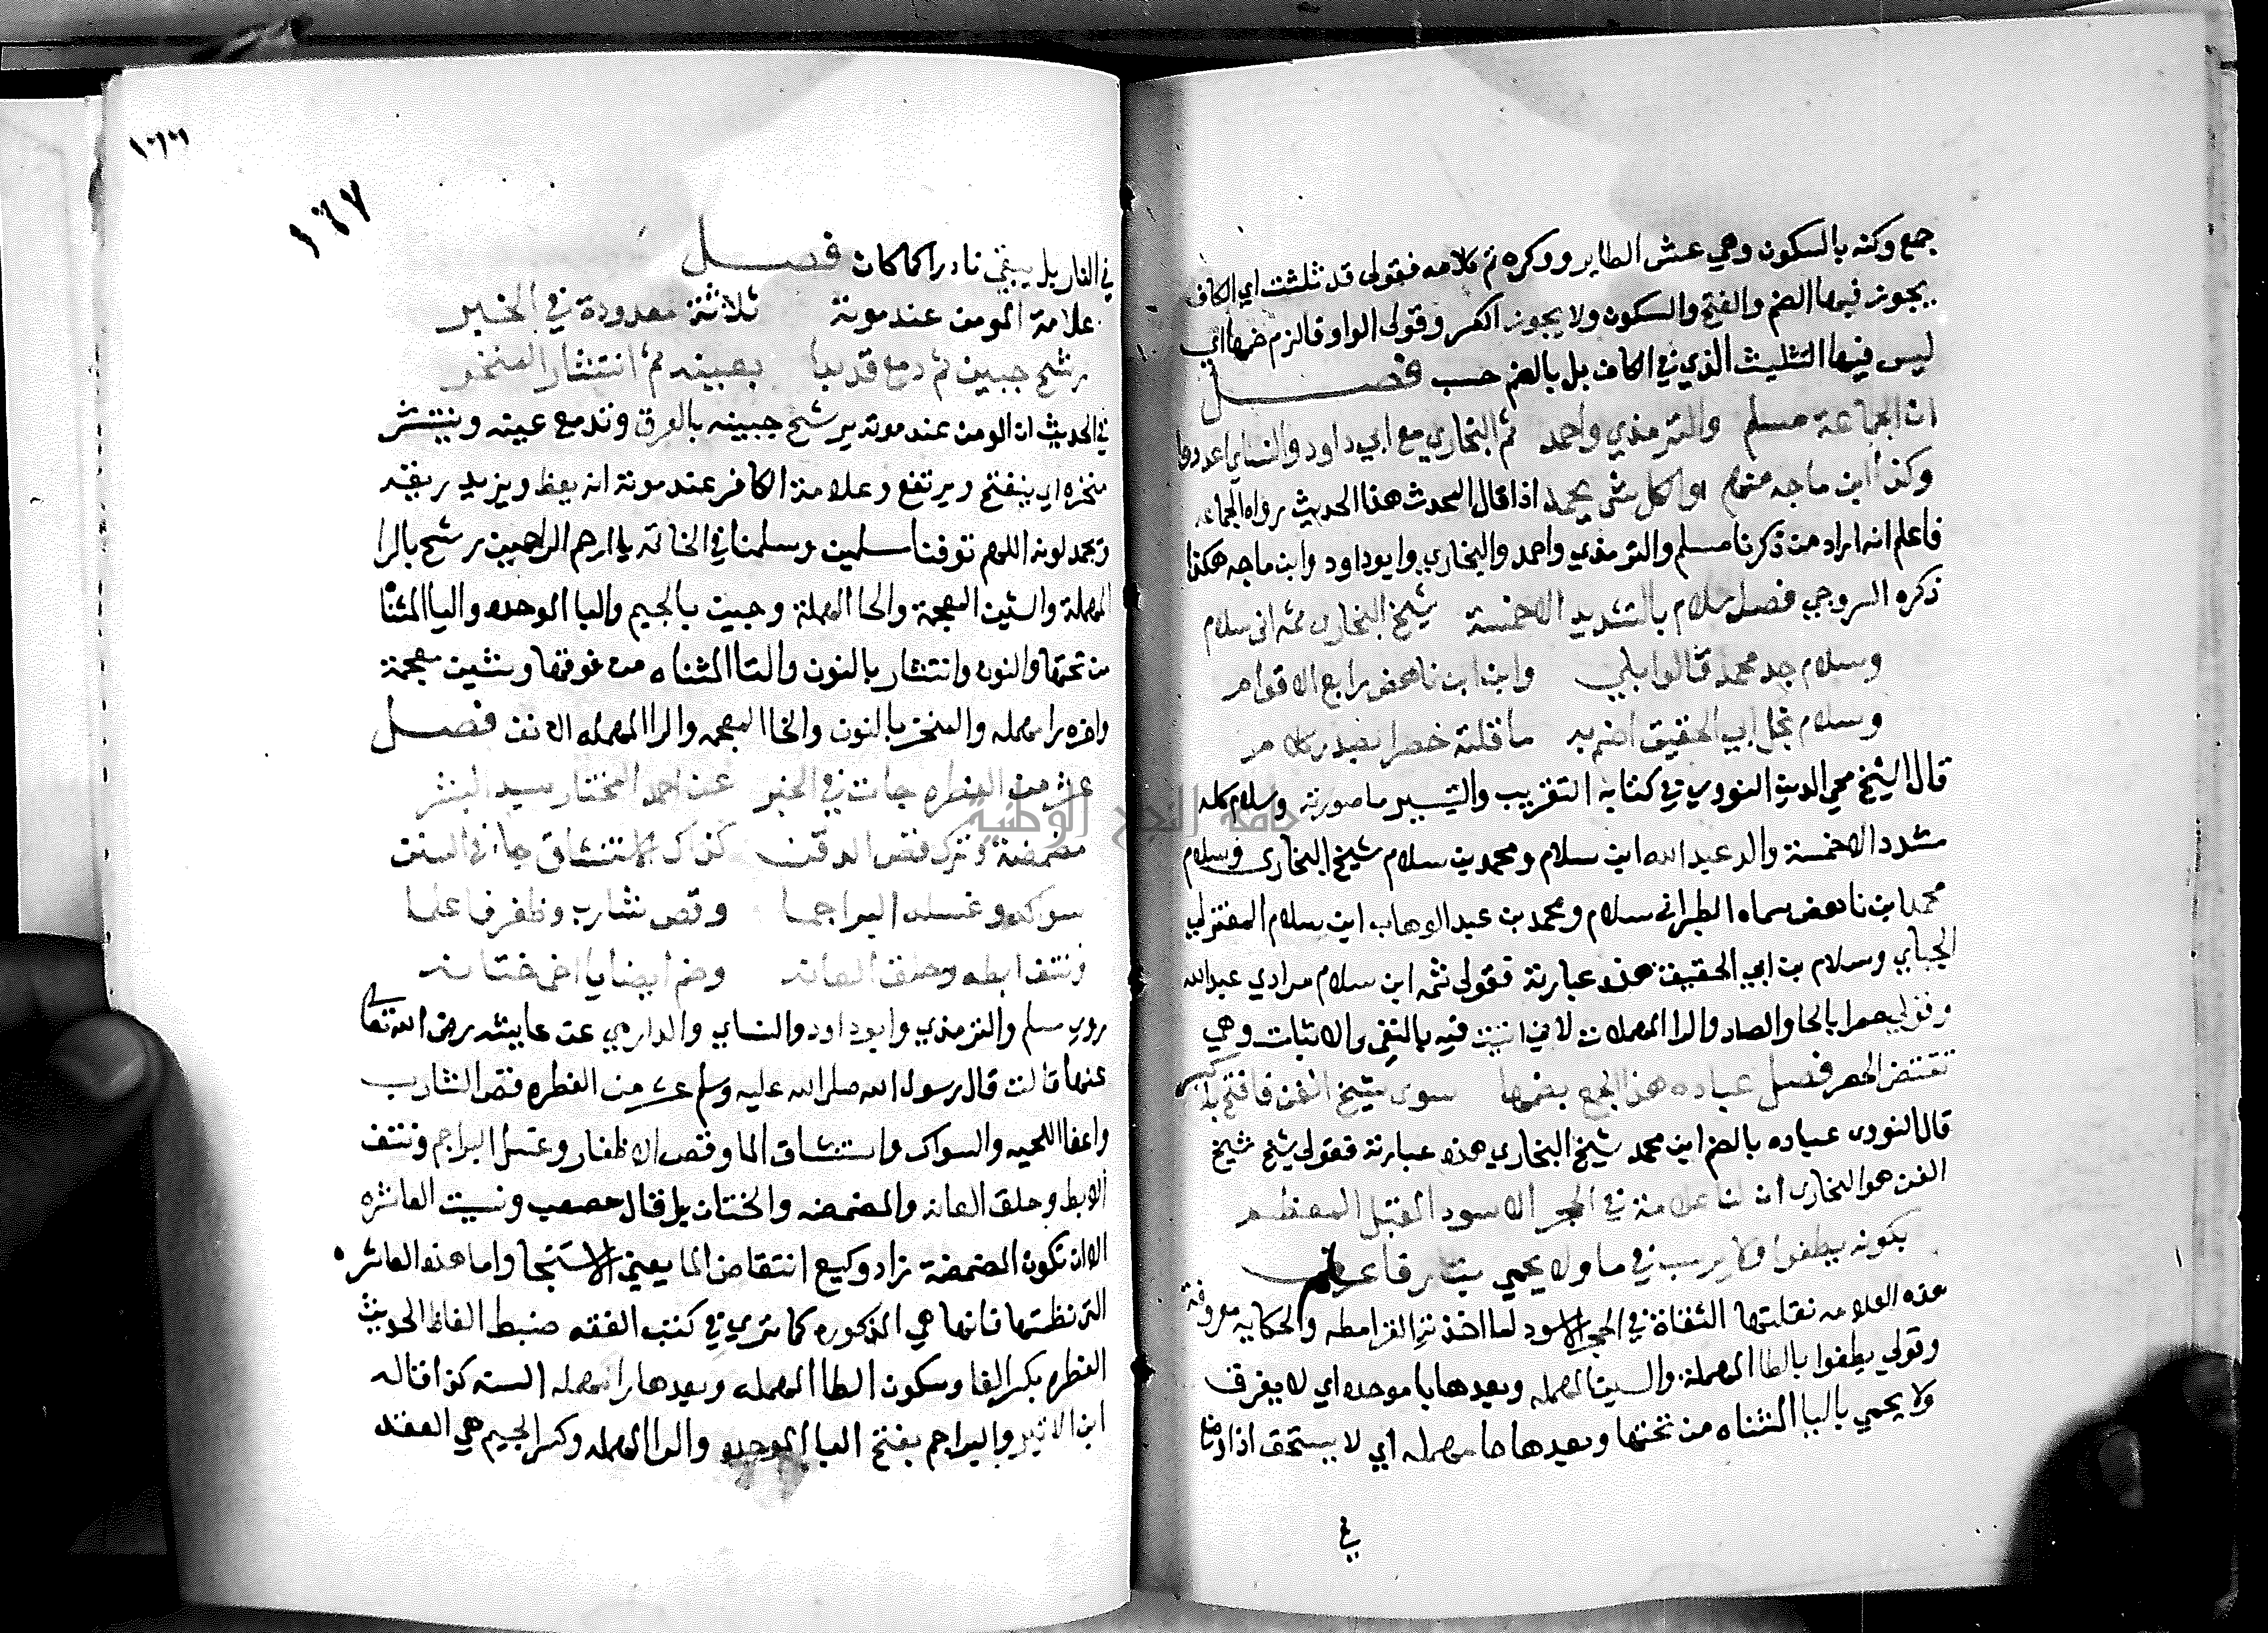 جمع وكنه بالسكون وهي عش الطاير ووكره ثم كلامه فقولى قد ثلثت اي الكاف
يجوز فيها الضم والفتح والسكون ولا يجوز الكسر وقولى الواو فالزم ضمها اي
ليس فيها التثليث الذي في الكاف بل بالضم حسب فصل
ان الجماعة مسلم والترمذي واحمد ثم البخاري مع ابي داود والنساي اعددوا
وكذا ابن ماجه منهم اذا قال المحدث هذا الحديث رواه الجماعه
فاعلم انه اراد من ذكرنا مسلم والترمذي واحمد والبخاري وابو داود وابن ماجه هكذا
ذكره السروجي فصل سلام بالتشديد الا خمسة شيخ البخارى ثمه ابى سلام
وسلام جد محمد قالوا بلي وابن ابن ناهض رابع الاقوام
وسلام نجل ابي الحقيق اضم به ما قلته حصرا بصدر كلام
قال الشيخ محي الدين النووي في كتابه التقريب والتيسير ما صورته وسلام كله
مشدد الا خمسة والد عبد الله ابن سلام ومحمد بن سلام شيخ البخارى وسلام
محمد ابن ناهض سماه الطبرانى سلام ومحمد بن عبد الوهاب ابن سلام المعتزلي
الجباي وسلام بن ابي الحقيق هذه عبارته فقولى ثمه ابن سلام مرادي عبد الله
وقولي حصرا بالحا والصاد والرا المهملات لاني اتيت فيه بالنفى والاثبات وهي
تقتضى الحصر فصل عباده هذا الجمع بضمها سوى شيخ شيخ الفن فافتح بلا
قال النووى عباده بالضم ابن محمد شيخ البخاري هذه عبارته فقولى شيخ شيخ
الفن هو البخارى ان لنا علامة في الحجر الاسود القبل المعظم
بكونه يطفوا ولا يرسب في ما ولا يحمي بنار فاعلم
هذه العلامه نقلتها الثقاة في الحجر الاسود لما اخذته القرامطه والحكايه معروفة
وقولي يطفوا بالطا المهملة والسين المهمله وبعدها با موحده اي لا يغرق
ولا يحمي باليا المثناه من تحتها وبعدها حا مهمله اي لا يستحق اذا وضع
في
١٦٧
في النار بل يبقى نادرا كما كان فصل
علامة المومن عند موته ثلاثة معدودة في الخبر
رشح جبين ثم دمع قد بدا بعينه ثم انتشار المنخر
في الحديث ان المومن عند موته يرشح جبينه بالعرق وتدمع عينه وينتشر
منخره اي ينفتح ويرتفع وعلامة الكافر عند موته انه يغط ويزيد ريقه
ويجمد لونه اللهم توفنا مسلمين وسلمنا في الخاتمه يا ارحم الراحمين رشح بالرا
المهملة والشين المعجمة والحا المهملة وجبين بالجيم والبا الموحده واليا المثناه
من تحتها والنون وانتشار بالنون والتا المثناه من فوقها وبشين معجمة
واخره را مهمله والمنخر بالنون والخا المعجمه والرا المهمله الانف فصل
عشر من الفطره جات في الخبر عن احمد المختار سيد البشر
مضمضة وترك قص الدقن كذاك الاستنشاق جا في السنن
سواكه وغسله البراجما وقص شارب وظفر فاعلما
ونتف ابطه وحلق العانه وضم ايضا يا اخى ختانه
روي مسلم والترمذي وابو داود والنساي والدارمي عن عايشه رضى الله تعالى
عنها قالت قال رسول الله صلى الله عليه وسلم عشر من الفطره قص الشارب
واعفا اللحيه والسواك واستنشاق الما وقص الاظفار وغسل البراجم ونتف
الابط وحلق العانه والمضمضه والختان بل قال مصعب ونسيت العاشره
الا ان تكون المضمضة زاد وكيع انتقاص الما يعني الاستنجا واما هذه العاشره
التى نظمتها فانها هي المذكوره كما ترى في كتب الفقه ضبط الفاظ الحديث
الفطره بكسر الفا وسكون الطا المهمله وبعدها را مهمله السنه كذا قاله
ابن الاثير والبراجم بفتح البا الموحده والرا المهمله وكسر الجيم هي العقد
جامعة النجاح الوطنية